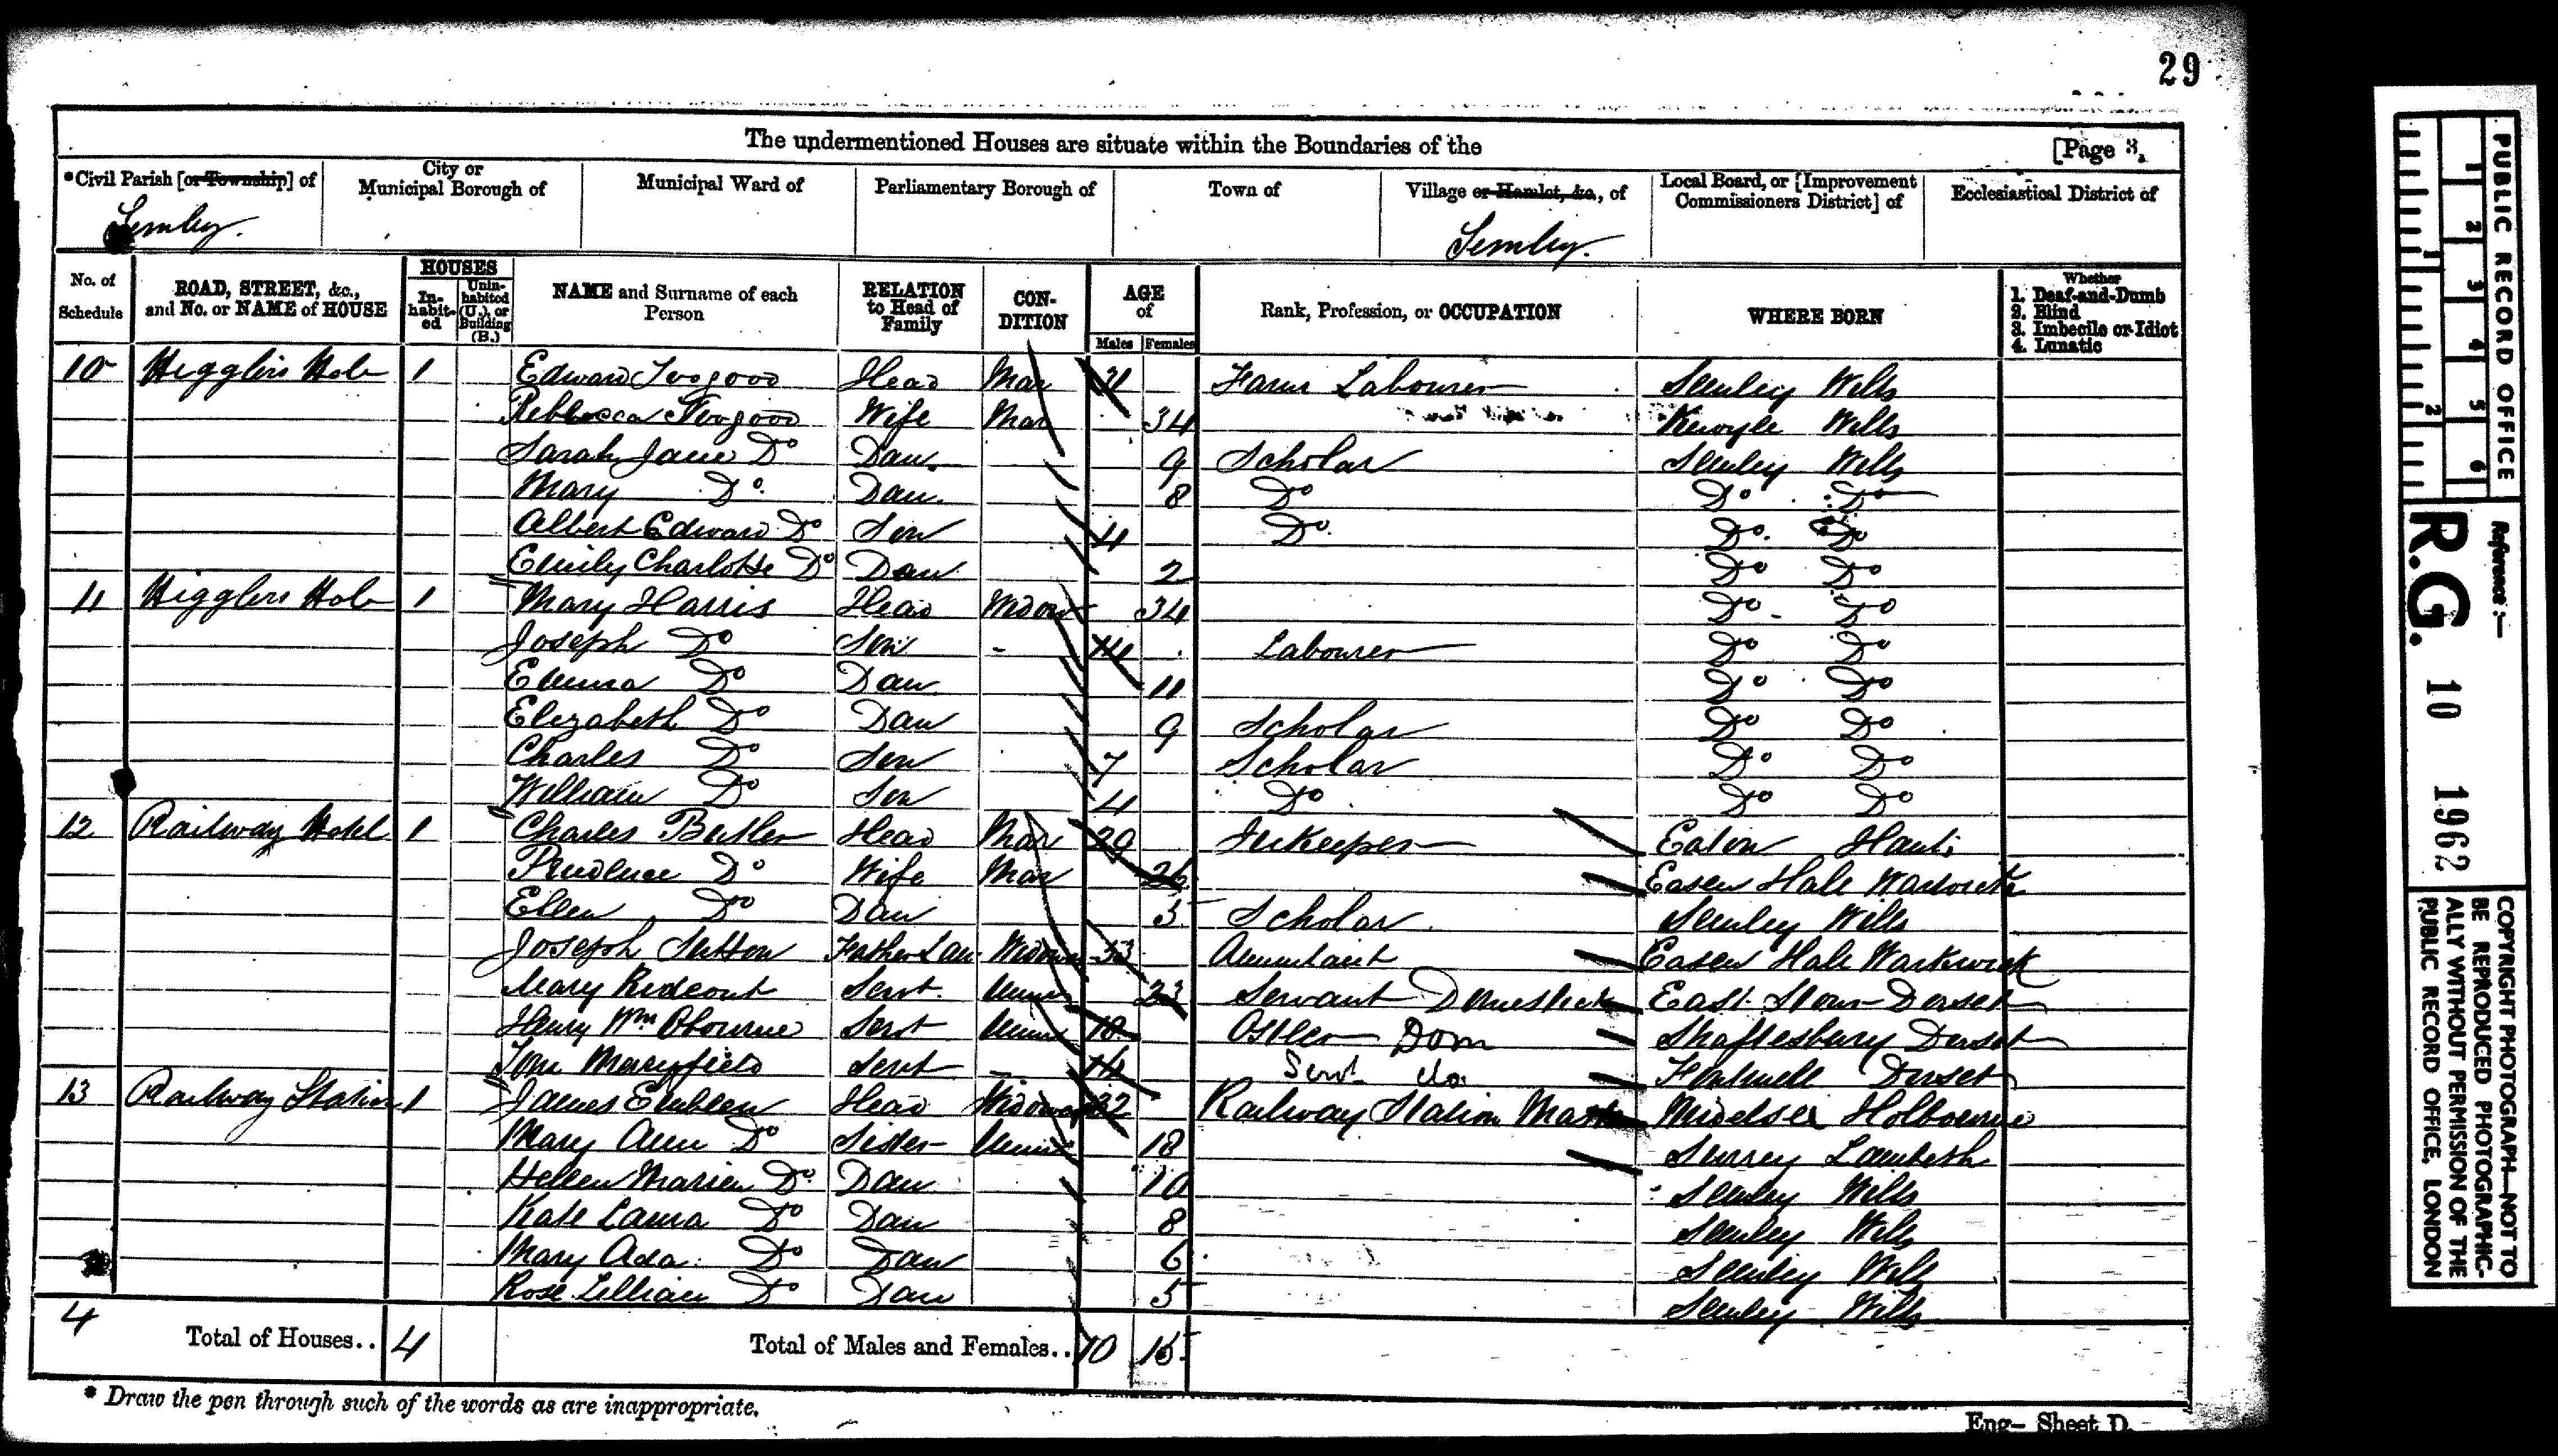 29
The undermentioned Houses are situate within the Boundaries of the [Page 3.
*Civil Parish [or Township] of
City or Municipal Borough of
Municipal Ward of
Parliamentary Borough of
Town of
Village or Hamlet, &c., of
Local Board, or [Improvement Commissioners District] of
Ecclesiastical District of
Semley. Semley.
No. of Schedule
ROAD, STREET, &c., and No. or NAME of HOUSE
HOUSES
In-habit-ed
Unin-habited (U.), or Building (B.)
NAME and Surname of each Person
RELATION to Head of Family
CON-DITION
AGE of
Males Females
Rank, Profession, or OCCUPATION
WHERE BORN
Whether
1. Deaf-and-Dumb
2. Blind
3. Imbecile or Idiot
4. Lunatic
10 Higglers Hole 1 Edward Head Mar 31 Farm Labourer Semley Wilts
Rebbecca Wife Mar 34 Wilts
Sarah Jane Do Dau. 9 Scholar Semley Wilts
Mary Do. Dau. 8 Do Do Do
Albert Edward Do Son 4 Do. Do. Do
Emily Charlotte Do Dau 2 Do Do
11 Higglers Hole 1 Mary Harris Head Widow 34 Do Do
Joseph Do Son 14 Labourer Do Do
Emma Do Dau 11 Do Do
Elizabeth Do Dau 9 Scholar Do Do
Charles Do Son 7 Scholar Do Do
William Do Son 4 Do Do Do
12 Railway Hotel 1 Charles Butler Head Mar 29 Inkeeper Hants
Prudence Do Wife Mar 26
Ellen Do Dau 5 Scholar Semley Wilts
Joseph Sutton Father Law 53
Mary Rideout Servt. 23 Servant Domestick East Stour Dorset
Henry Wm Servt 18 Ostler Dom Shaftesbury Dorset
Servt 14 Servt do. Fontmell Dorset
13 Railway Station 1 James Head 32 Railway Station Master Holbourne
Mary Ann Do Sister 18 Surrey Lambeth
Do Dau 10 Semley Wilts
Kate Laura Do Dau 8 Semley Wilts
Mary Ada Do Dau 6 Semley Wilts
Rose Lillian Do Dau 5 Semley Wilts
4 Total of Houses.. 4 Total of Males and Females.. 10 15
* Draw the pen through such of the words as are inappropriate.
Eng- Sheet D.
PUBLIC RECORD OFFICE
1 2 3 4 5 6
1 2
Reference:-
R.G. 10 1962
COPYRIGHT PHOTOGRAPH-NOT TO
BE REPRODUCED PHOTOGRAPHIC-
ALLY WITHOUT PERMISSION OF THE
PUBLIC RECORD OFFICE, LONDON